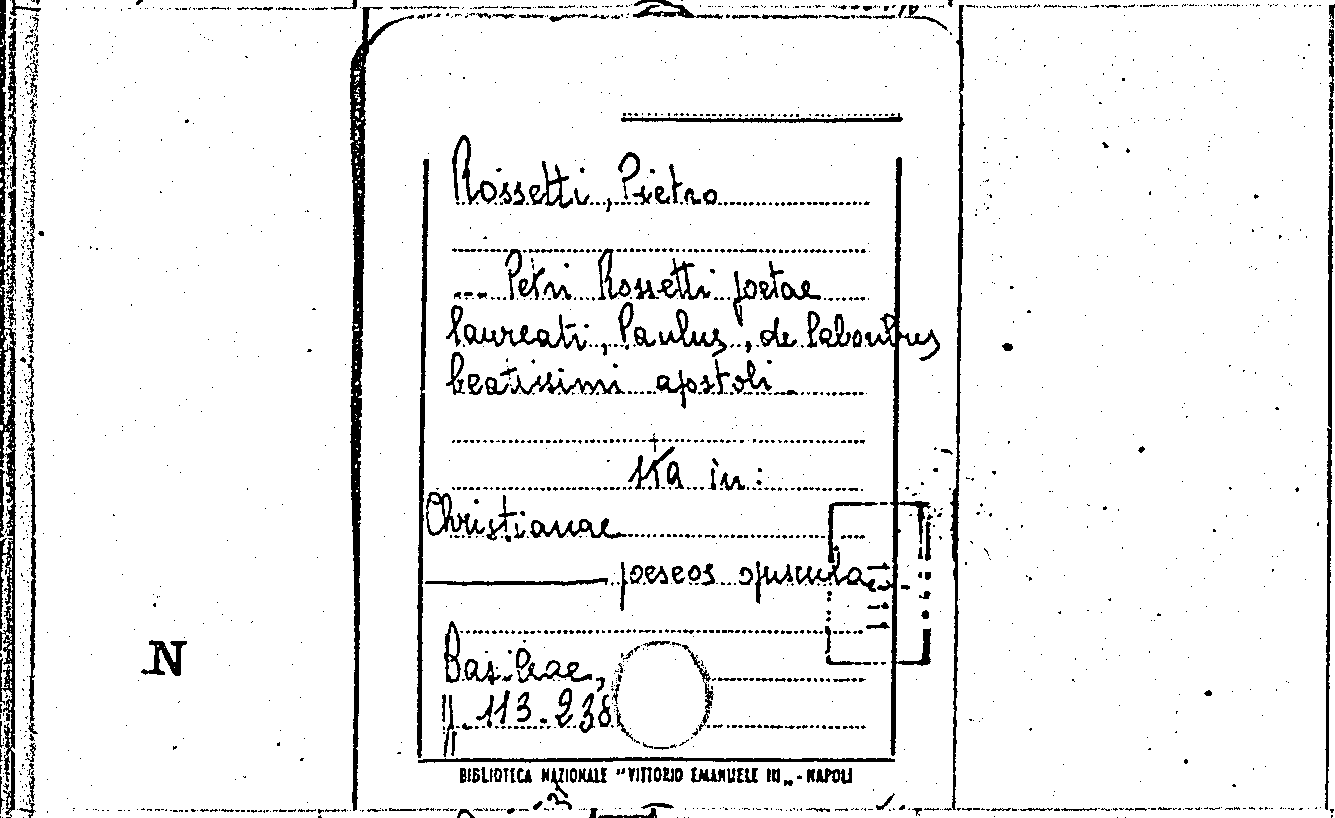 Rossetti, Pietro
... Petri Rossetti poetae
laureati, Paulus, de laboribus
beatissimi apostoli.
Sta in:
Christianae
poeseos opuscula
N
Basileae,
ff. 113-238
BIBLIOTECA NAZIONALE "VITTORIO EMANUELE III„ - NAPOLI